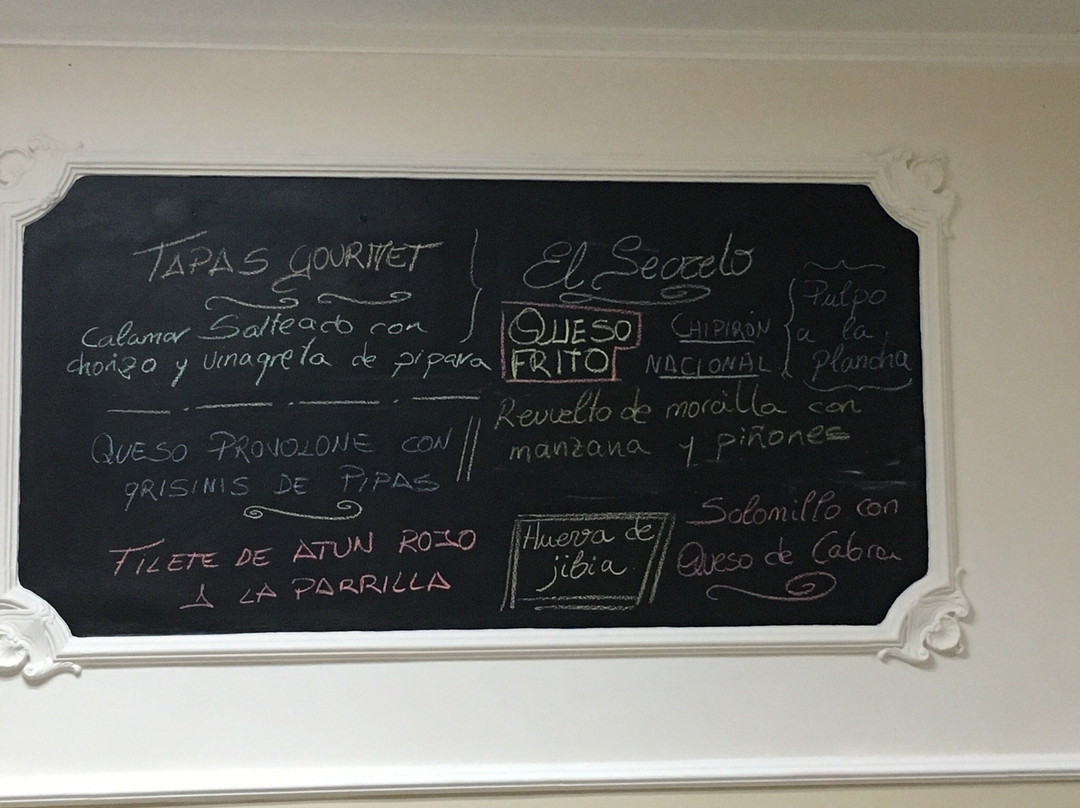 TAPAS GOURMET
Calamar Salteado con
chorizo y vinagreta de pipara
QUESO PROVOLONE CON
GRISINIS DE PIPAS
FILETE DE ATUN ROJO
A LA PARRILLA
El Secreto
QUESO
FRITO
CHIPIRÓN
NACIONAL
Pulpo
a la
plancha
Revuelto de morcilla con
manzana y piñones
Hueva de
jibia
Solomillo con
Queso de Cabra